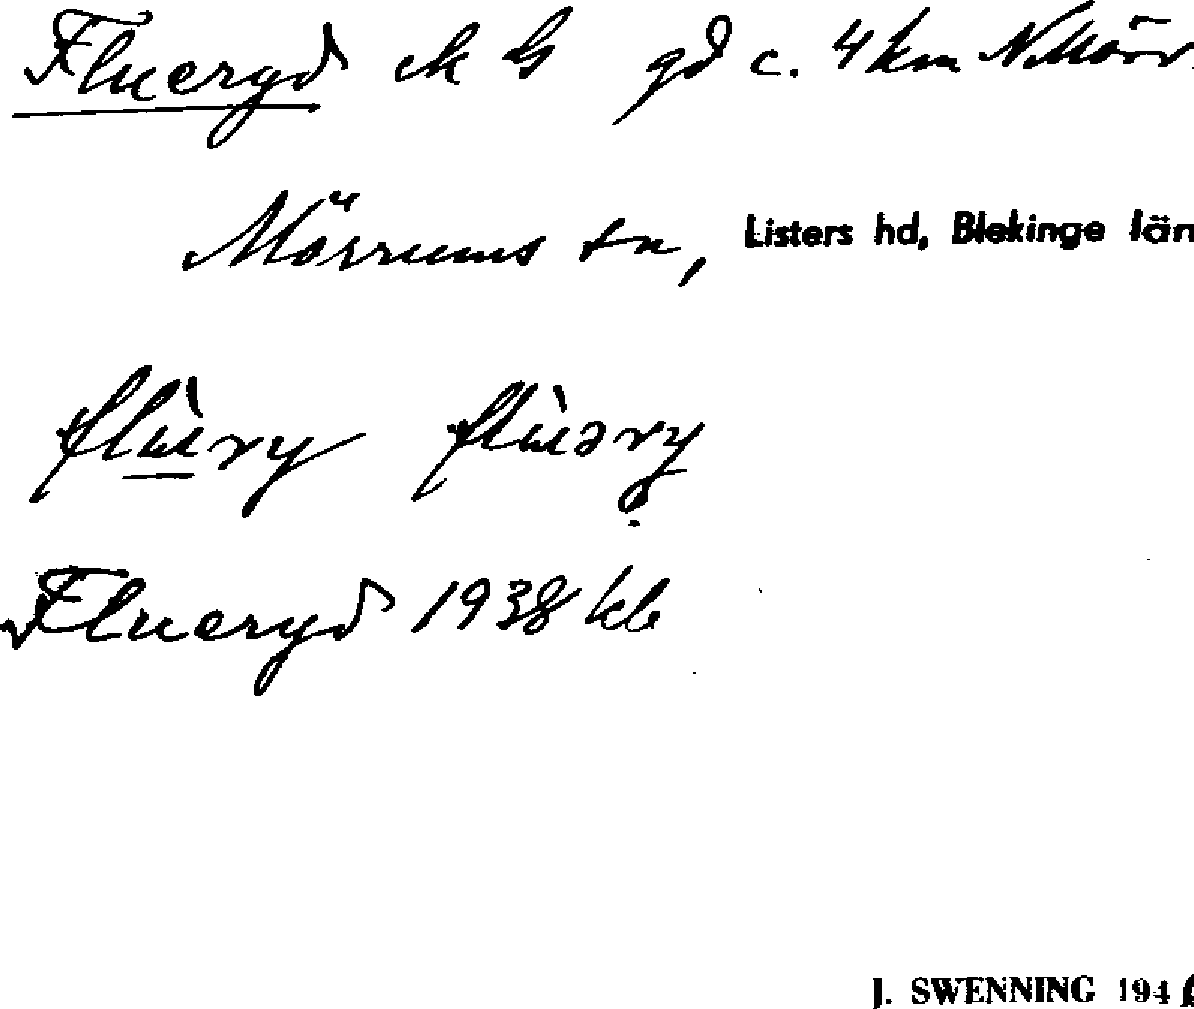 Flueryd ek G gd c. 4 km N Mörr
Mörrums sn, Listers hd, Blekinge län
flùery flùəry
Flueryd 1938 kb
J. SWENNING 194